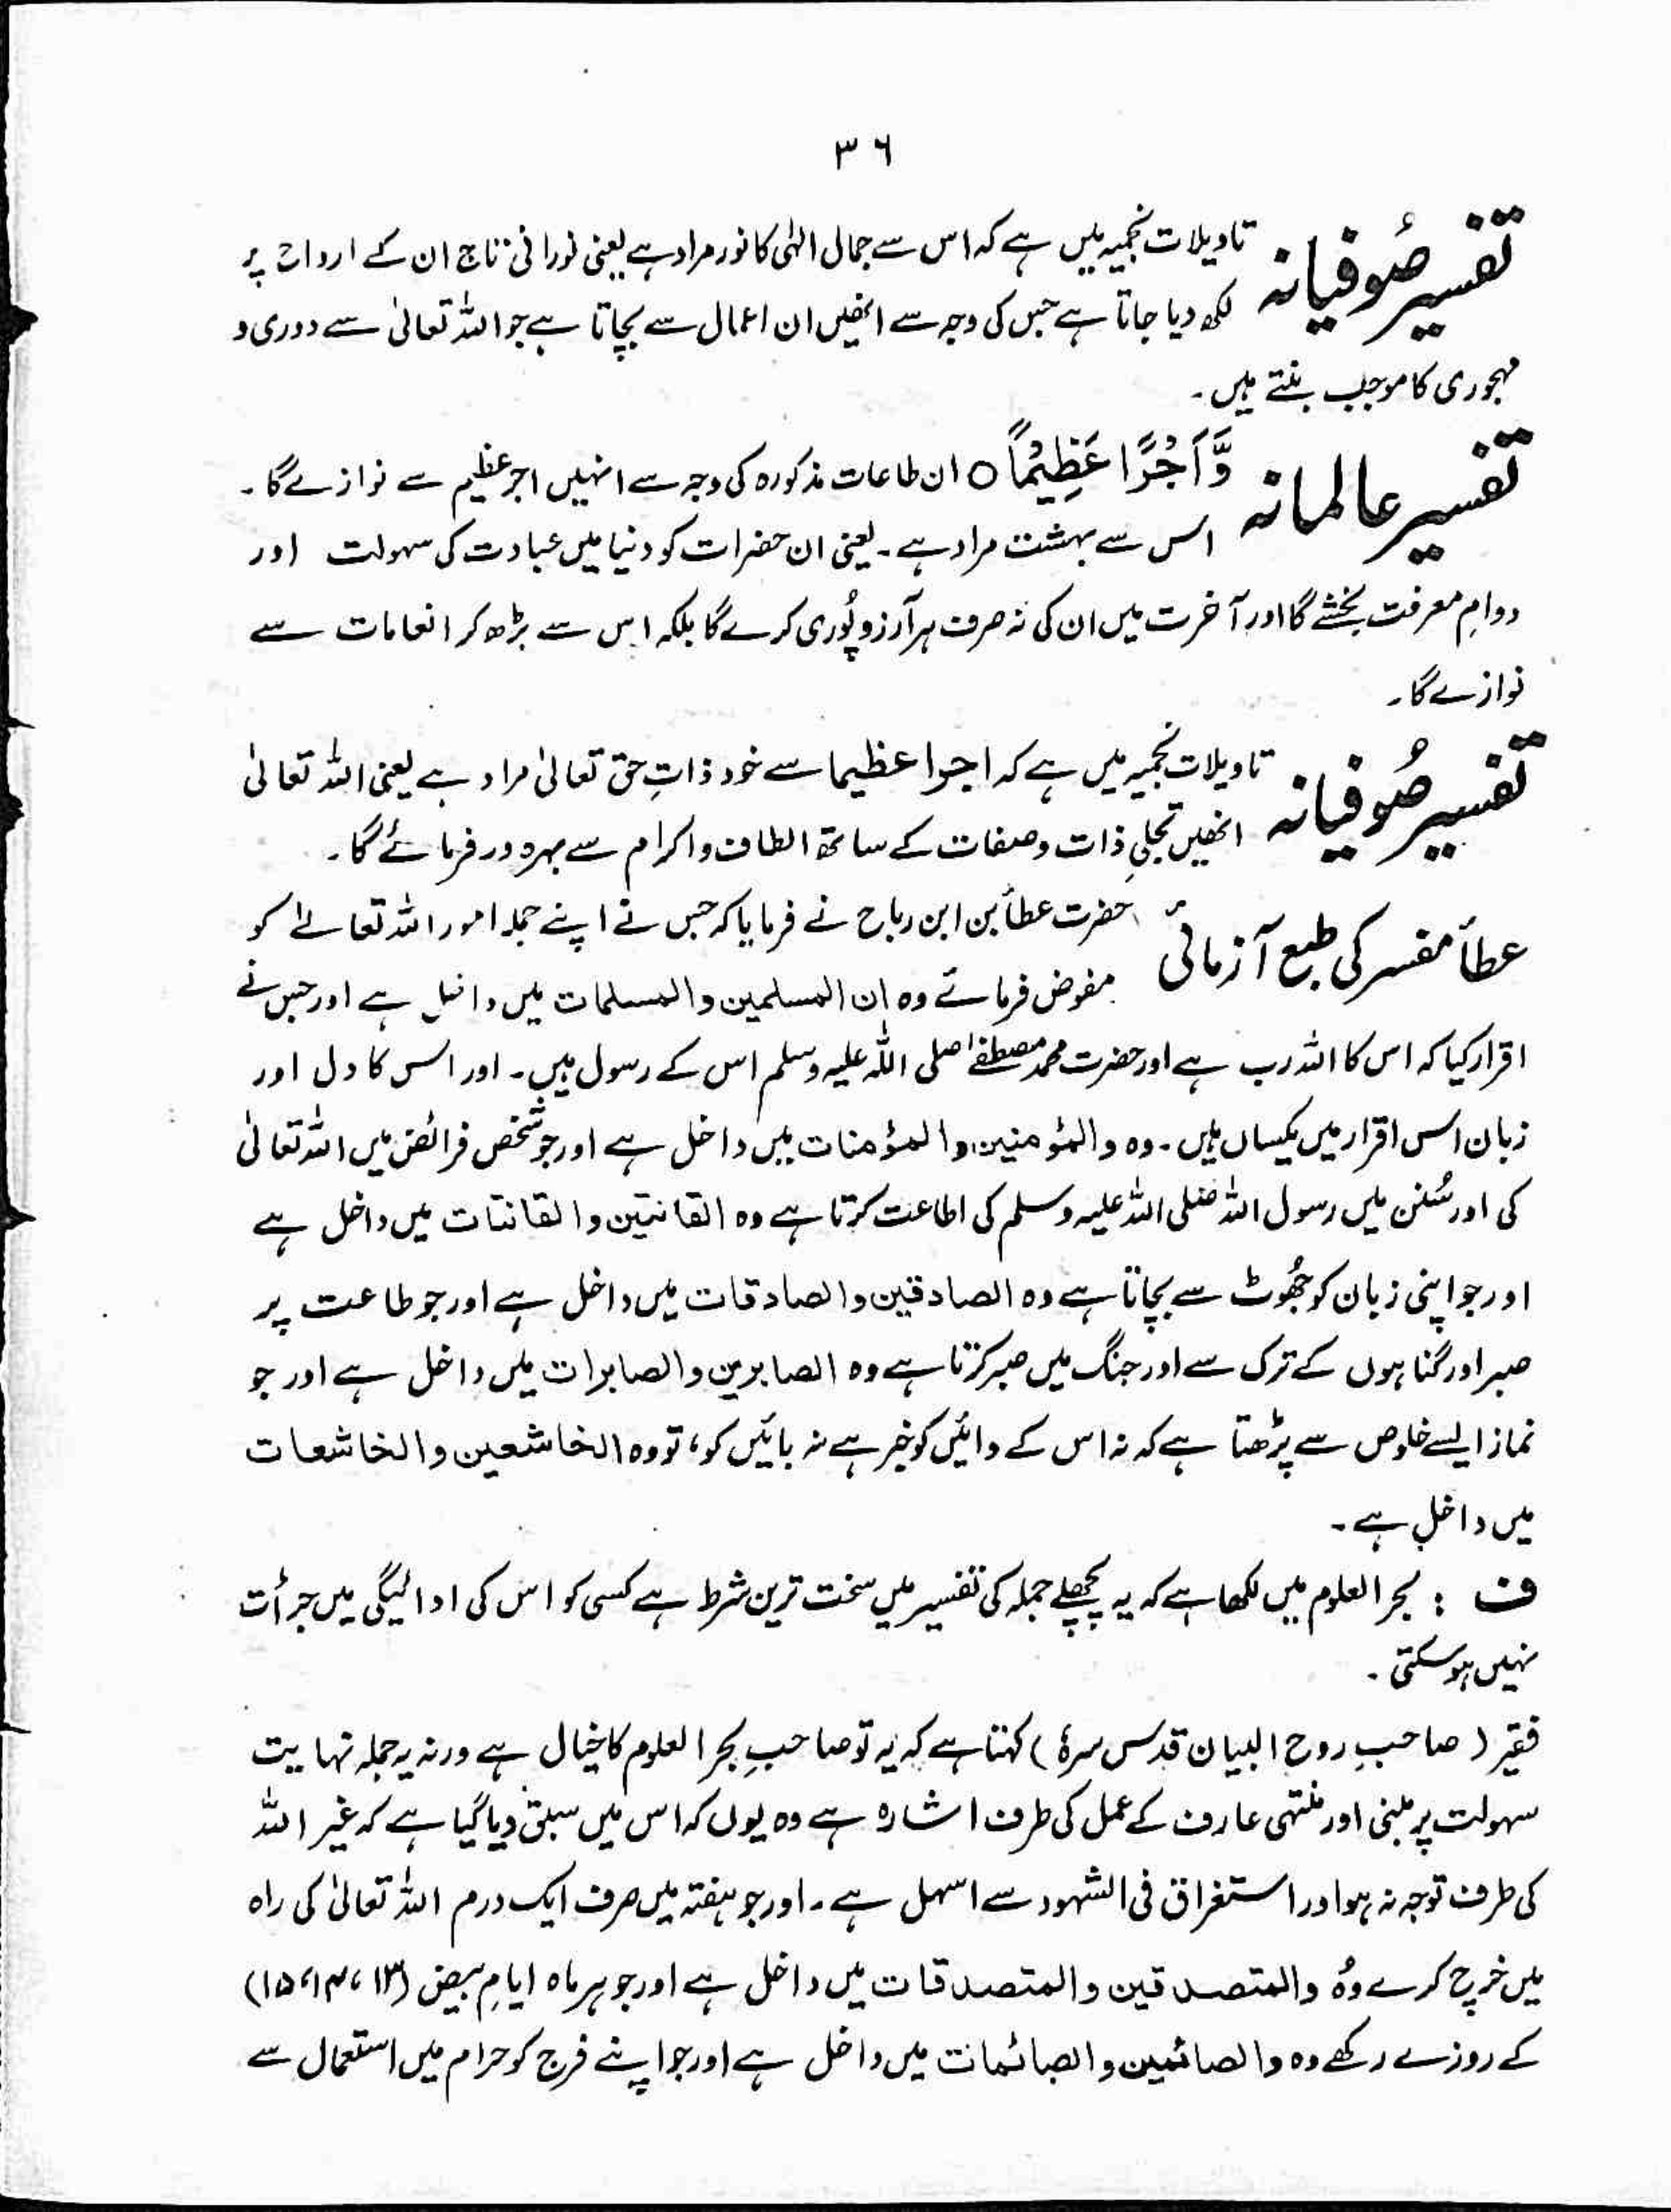 ۳۶
تفسیر صُوفیانہ تاویلات نجمیہ میں ہے کہ اس سے جمال الٰہی کا نور مراد ہے یعنی نورانی تاج ان کے ارواح پر
لکھ دیا جاتا ہے جس کی وجہ سے انھیں ان اعمال سے بچاتا ہے جو اللہ تعالیٰ سے دوری و
مہجوری کا موجب بنتے ہیں۔
تفسیر عالمانہ وَّاَجْرًا عَظِیْمًا ○ ان طاعات مذکورہ کی وجہ سے انہیں اجر عظیم سے نوازے گا۔
اس سے بہشت مراد ہے۔ یعنی ان حضرات کو دنیا میں عبادت کی سہولت اور
دوامِ معرفت بخشے گا اور آخرت میں ان کی نہ صرف ہر آرزو پُوری کرے گا بلکہ اس سے بڑھ کر انعامات سے
نوازے گا۔
تفسیر صُوفیانہ تاویلات نجمیہ میں ہے کہ اجرا عظیما سے خود ذاتِ حق تعالیٰ مراد ہے یعنی اللہ تعالیٰ
انھیں تجلیِ ذات و صفات کے ساتھ الطاف و اکرام سے بہرہ ور فرمائے گا۔
عطأ مفسر کی طبع آزمائی حضرت عطأ بن ابن رباح نے فرمایا کہ جس نے اپنے جملہ امور اللہ تعالےٰ کو
مفوض فرمائے وہ ان المسلمین والمسلمات میں داخل ہے اور جس نے
اقرار کیا کہ اس کا اللہ رب ہے اور حضرت محمد مصطفےٰ صلی اللہ علیہ وسلم اس کے رسول ہیں۔ اور اس کا دل اور
زبان اس اقرار میں یکساں ہیں۔ وہ والمؤمنین والمؤمنات میں داخل ہے اور جو شخص فرائض میں اللہ تعالیٰ
کی اور سُنن میں رسول اللہ صلی اللہ علیہ وسلم کی اطاعت کرتا ہے وہ القانتین والقانتات میں داخل ہے
اور جو اپنی زبان کو جُھوٹ سے بچاتا ہے وہ الصادقین والصادقات میں داخل ہے اور جو طاعت پر
صبر اور گناہوں کے ترک سے اور جنگ میں صبر کرتا ہے وہ الصابرین والصابرات میں داخل ہے اور جو
نماز ایسے خلوص سے پڑھتا ہے کہ نہ اس کے دائیں کو خبر ہے نہ بائیں کو، تو وہ الخاشعین والخاشعات
میں داخل ہے۔
ف : بحر العلوم میں لکھا ہے کہ یہ پچھلے جملہ کی تفسیر میں سخت ترین شرط ہے کسی کو اس کی ادائیگی میں جرأت
نہیں ہو سکتی۔
فقیر (صاحبِ روح البیان قدس سرہٗ) کہتا ہے کہ یہ تو صاحبِ بحر العلوم کا خیال ہے ورنہ یہ جملہ نہایت
سہولت پر مبنی اور منتہی عارف کے عمل کی طرف اشارہ ہے وہ یوں کہ اس میں سبق دیا گیا ہے کہ غیر اللہ
کی طرف توجہ نہ ہو اور استغراق فی الشہود سے اسہل ہے۔ اور جو ہفتہ میں صرف ایک درم اللہ تعالیٰ کی راہ
میں خرچ کرے وُہ والمتصدقین والمتصدقات میں داخل ہے اور جو ہر ماہ ایامِ بیض (۱۳، ۱۴، ۱۵)
کے روزے رکھے وہ والصائمین والصائمات میں داخل ہے اور جو اپنے فرج کو حرام میں استعمال سے